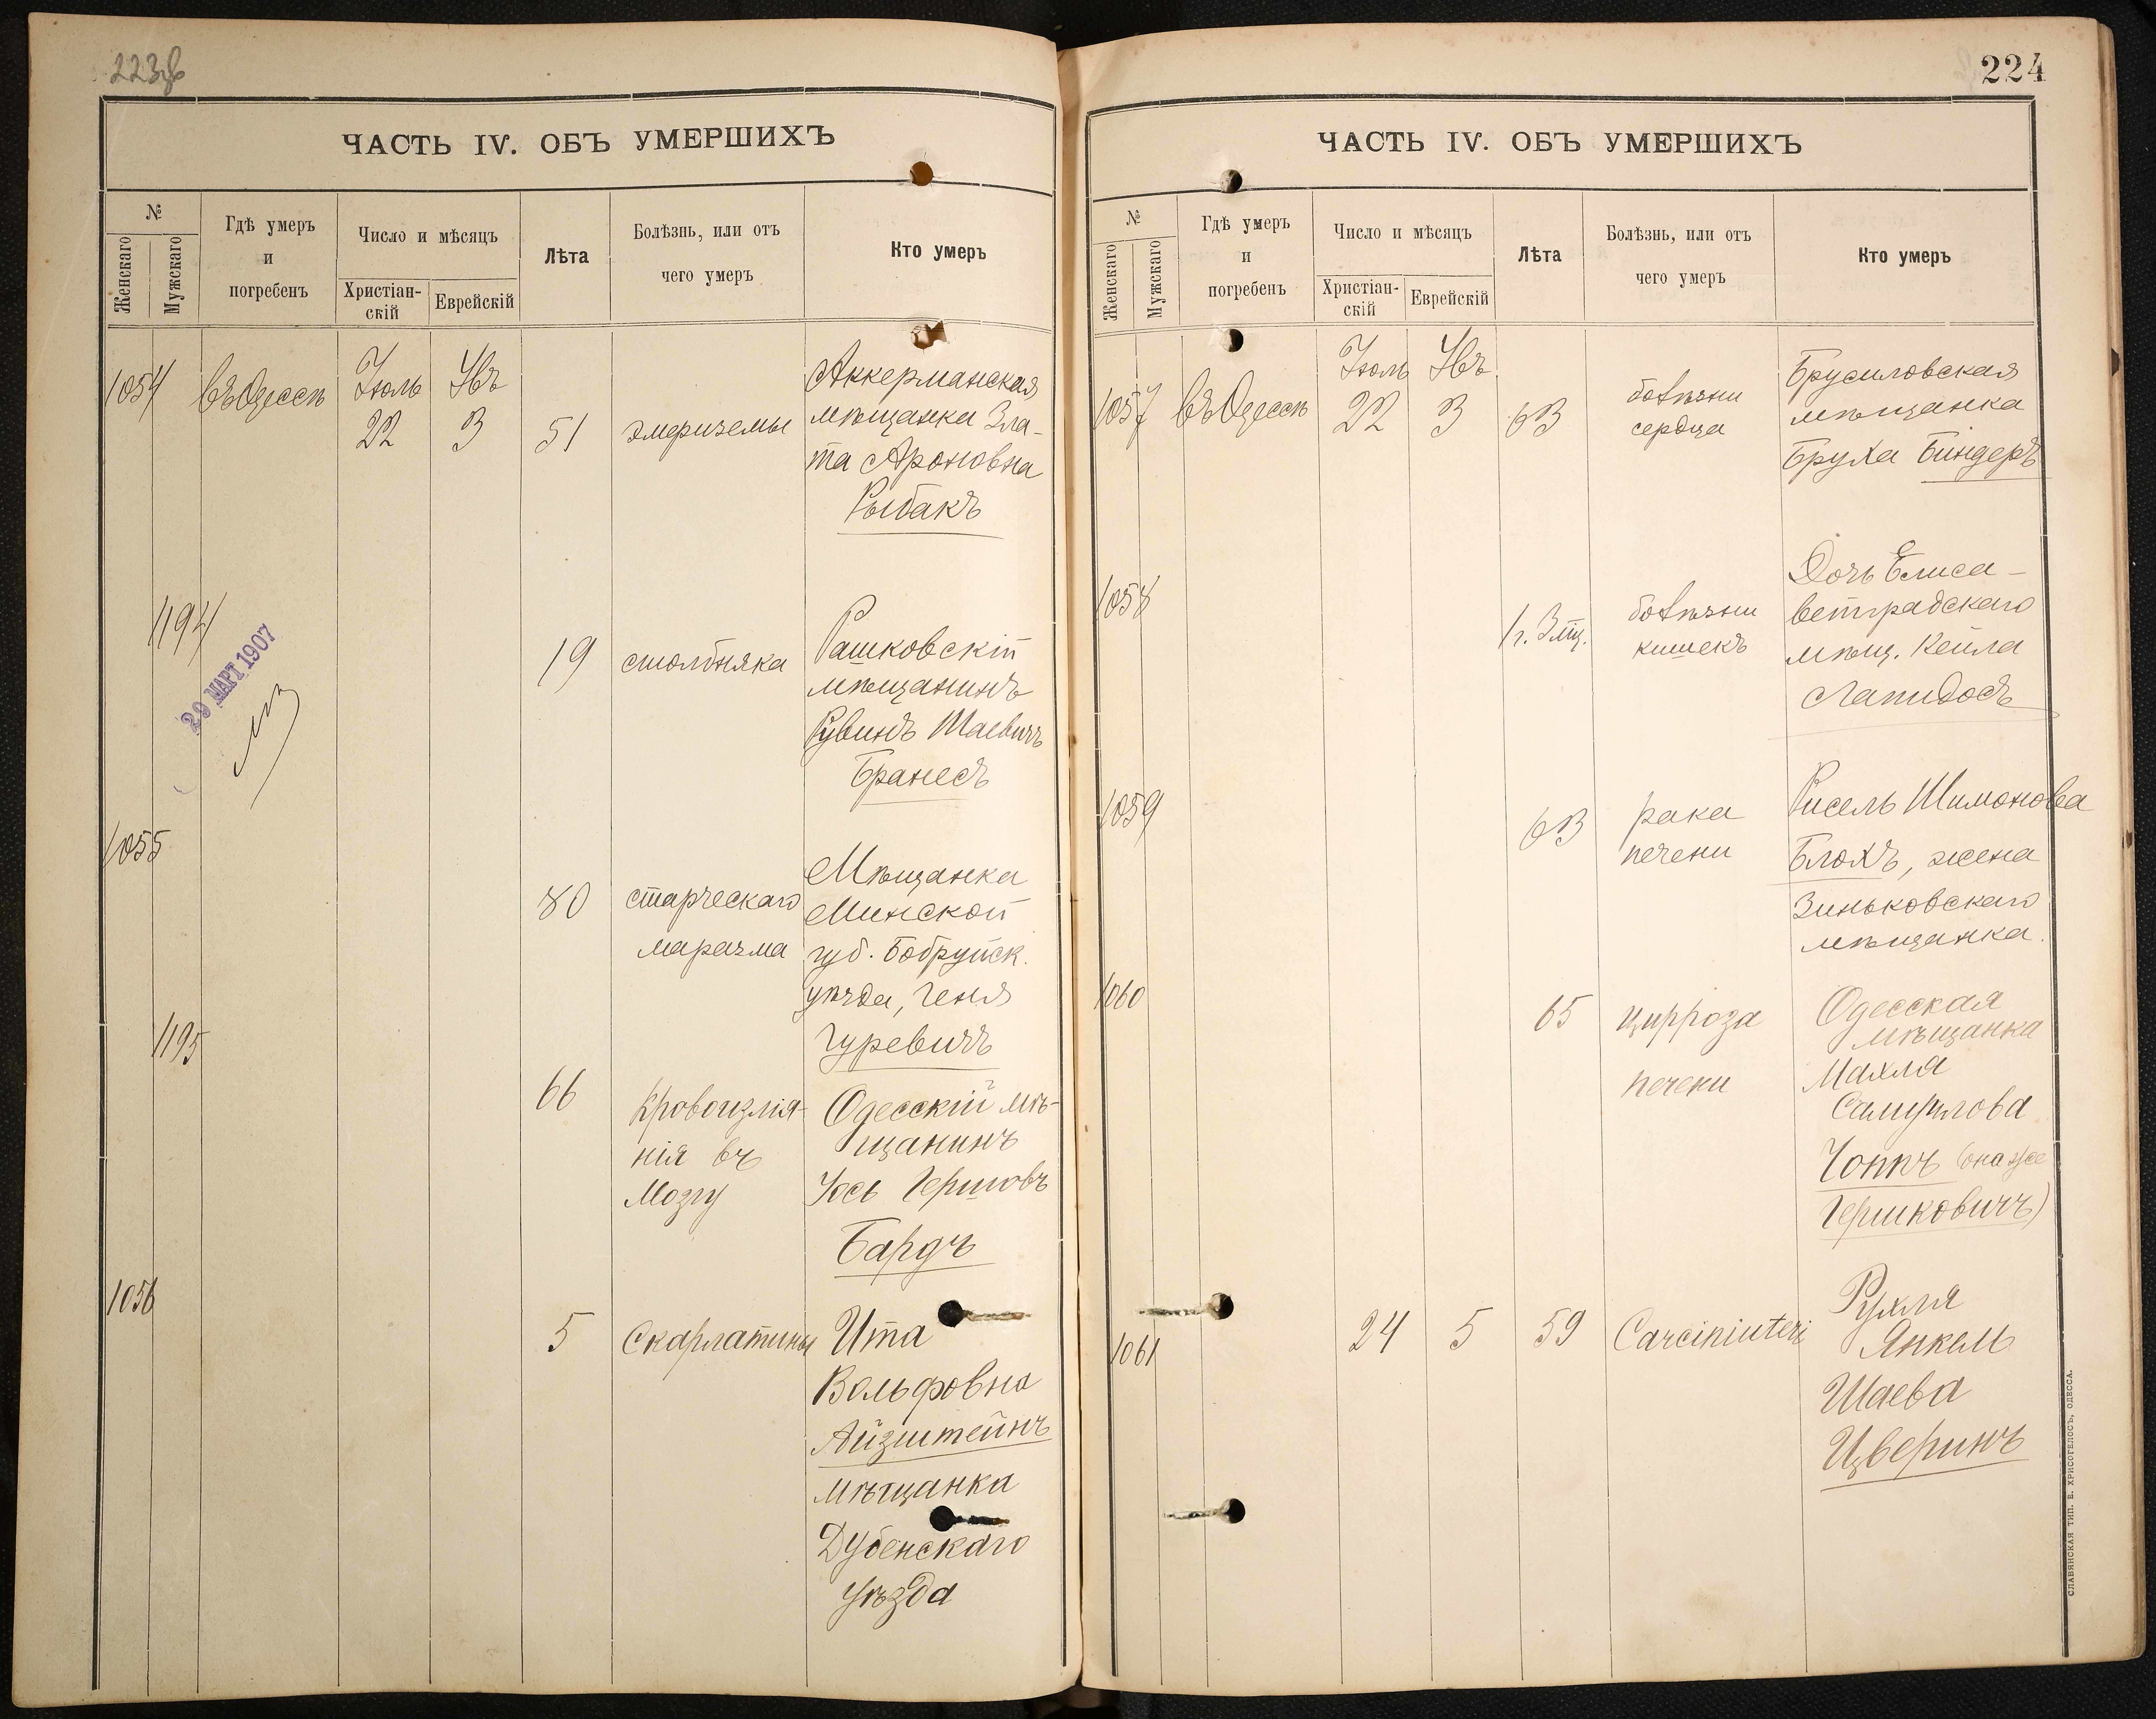 223об
ЧАСТЬ IV. ОБЪ УМЕРШИХЪ
№
Женскаго
Мужскаго
Гдѣ умеръ
и
погребенъ
Число и мѣсяцъ
Христіан-
скій
Еврейскій
Лѣта
Болѣзнь, или отъ
чего умеръ
Кто умеръ
1054
въ Одессѣ
Іюль
22
Увъ
3
51
эмфиземы
Аккерманская
мѣщанка Зла-
та Ароновна
Рыбакъ
1194
29 МАРТ 1907
19
столбняка
Рашковскій
мѣщанинъ
Рувинъ Шаевичъ
Бранесъ
1055
80
старческаго
маразма
Мѣщанка
Минской
губ. Бобруйск.
уѣзда, Геня
Гуревичъ
1195
66
Кровоизлія-
нія въ
Мозгу
Одесскій мѣ-
щанинъ
Іось Гершовъ
Бардъ
1056
5
Скарлатины
Ита
Вольфовна
Айзштейнъ
мѣщанка
Дубенскаго
уѣзда
224
ЧАСТЬ IV. ОБЪ УМЕРШИХЪ
№
Женскаго
Мужскаго
Гдѣ умеръ
и
погребенъ
Число и мѣсяцъ
Христіан-
скій
Еврейскій
Лѣта
Болѣзнь, или отъ
чего умеръ
Кто умеръ
1057
въ Одессѣ
Іюль
22
Увъ
3
63
болѣзни
сердца
Брусиловская
мѣщанка
Бруха Биндеръ
1058
1 г. 3 мц.
болѣзни
кишекъ
Дочь Елиса-
ветградскаго
мѣщ. Кейла
Лапидосъ
1059
63
рака
печени
Рисель Шимонова
Блохъ, жена
Зиньковскаго
мѣщанка.
1060
65
цирроза
печени
Одесская
мѣщанка
Махля
Самуилова
Чоппъ (она же
Гершковичъ)
1061
24
5
59
Carciniuteri
Рухля
Янкель
Шаева
Цверинъ
СЛАВЯНСКАЯ ТИП. Е. ХРИСОГЕЛОСЪ, ОДЕССА.